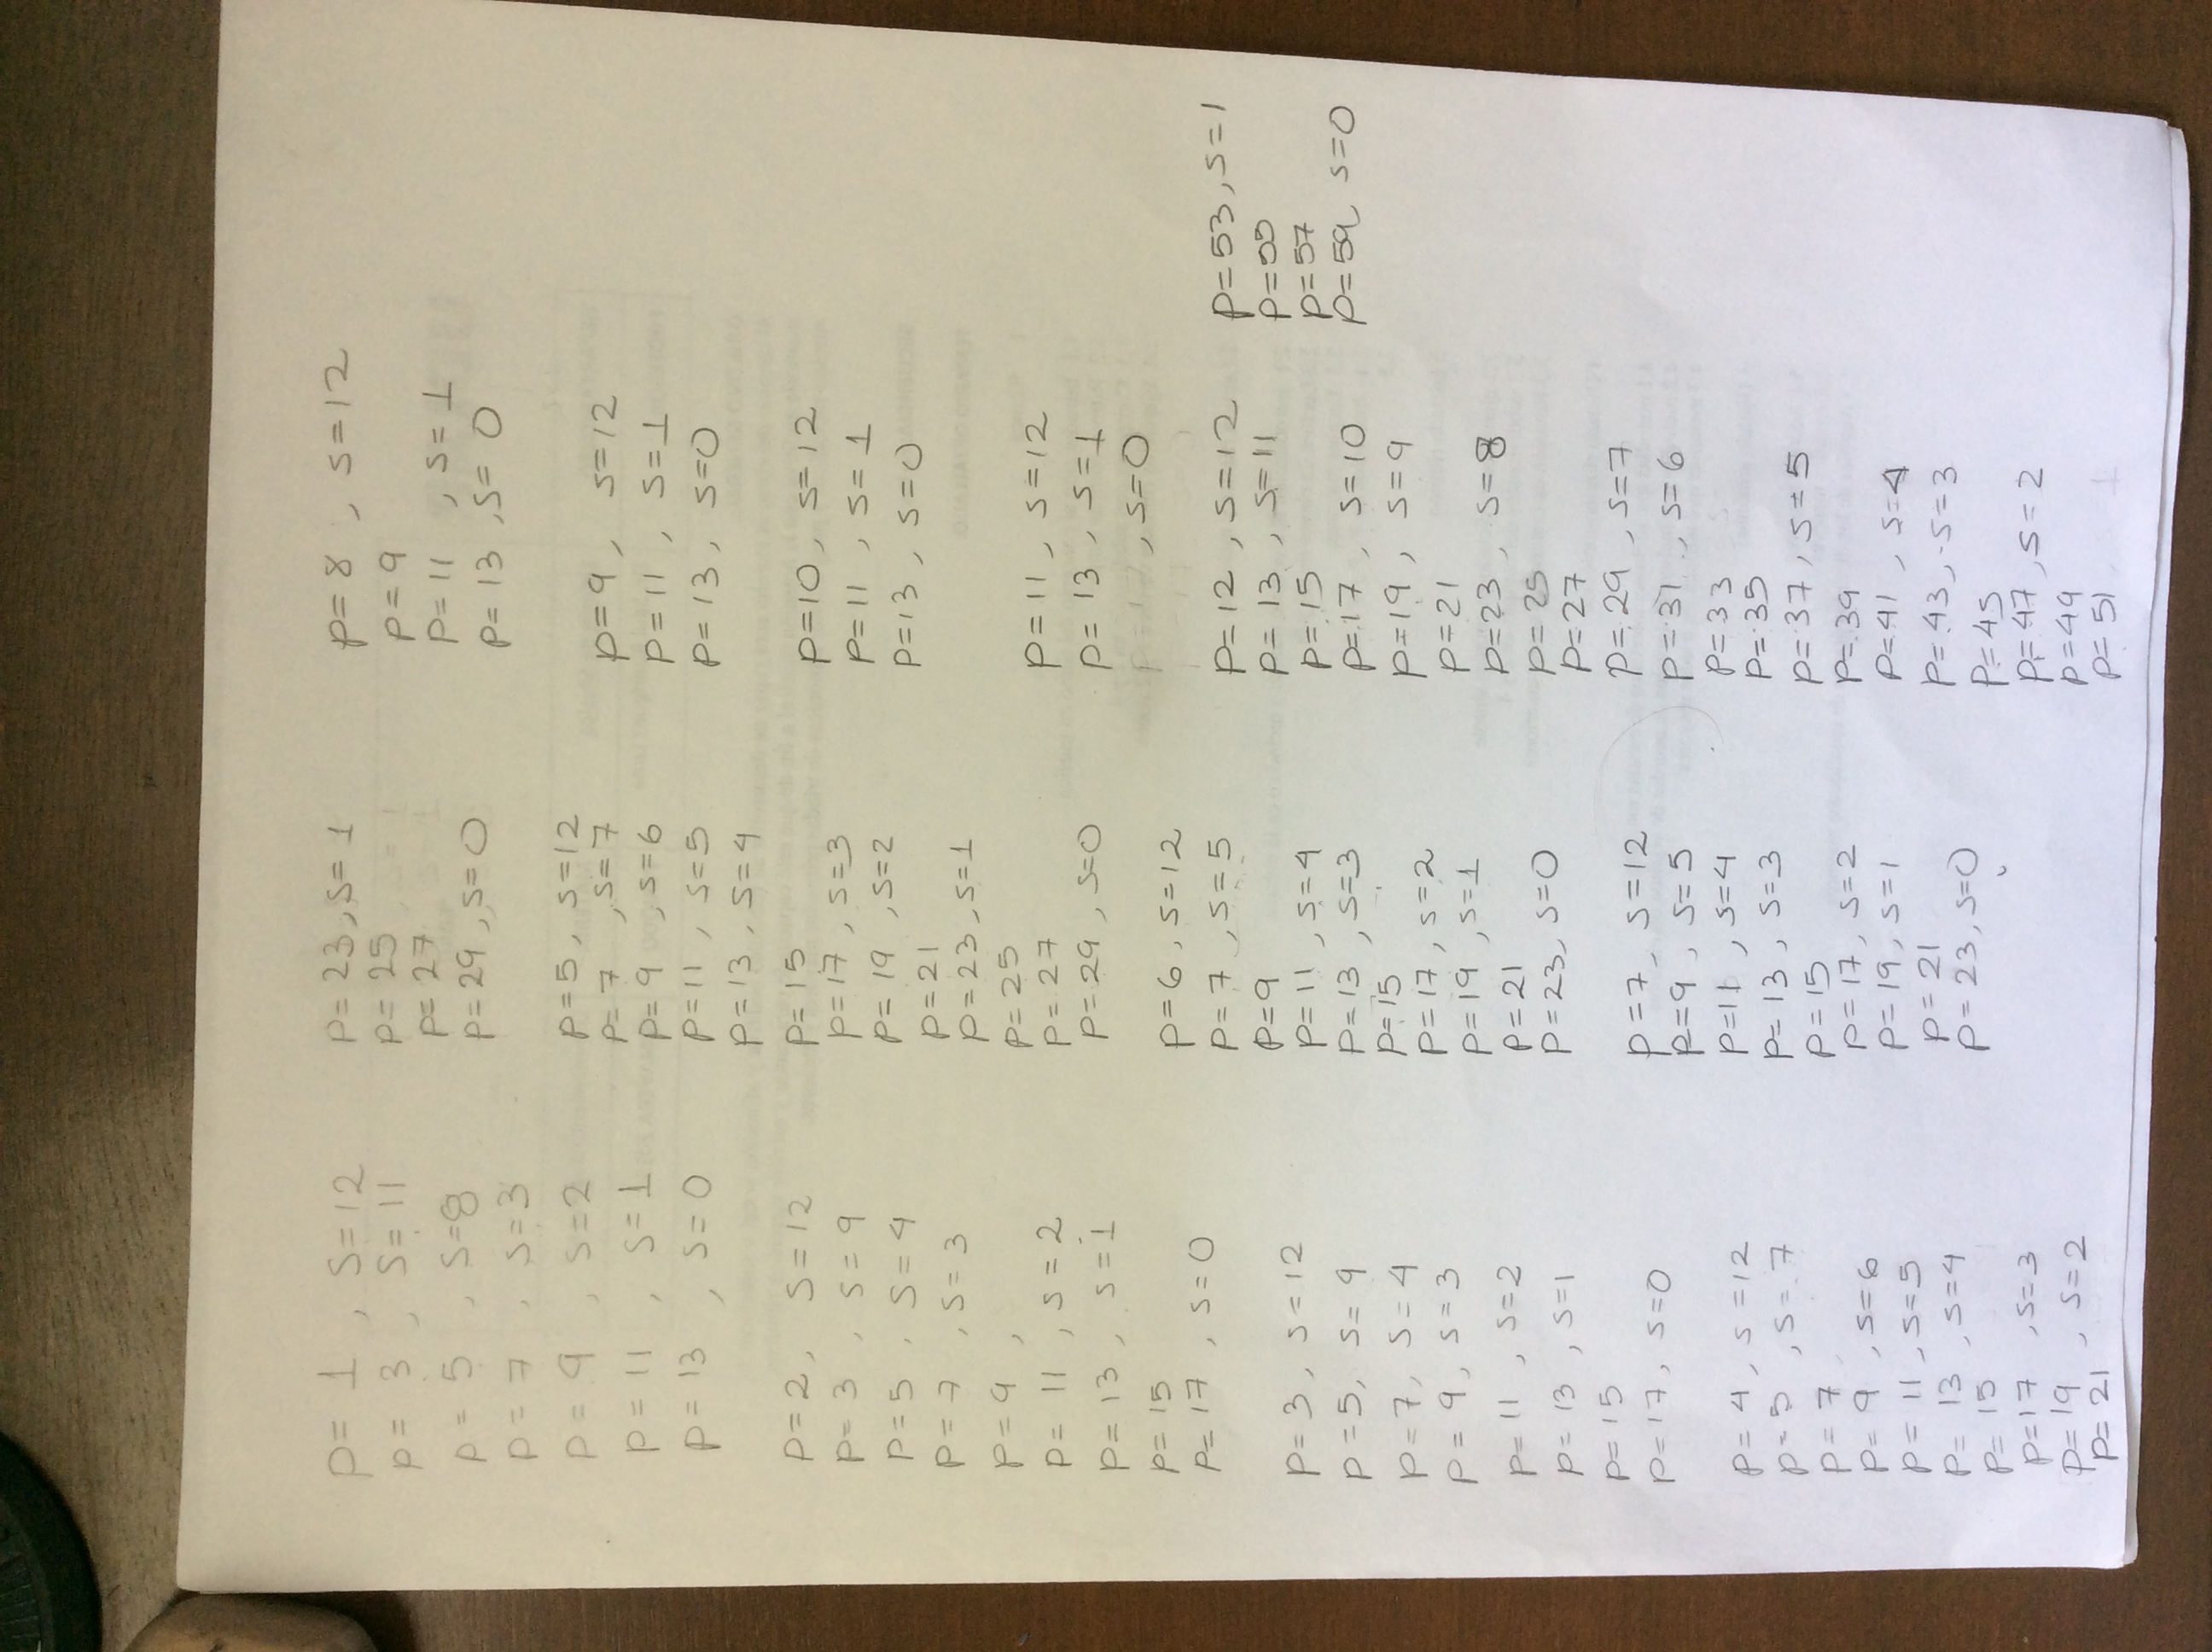 p= 1 , s=12
p= 3 , s=11
p= 5 , s=8
p= 7 , s=3
p= 9 , s=2
p= 11 , s=1
p= 13 , s=0
p=2, s=12
p= 3 , s=9
p=5 , s=4
p= 7 , s=3
p=9 ,
p= 11 , s=2
p= 13 , s=1
p= 15
p= 17 , s=0
p=3, s=12
p=5, s=9
p=7, s=4
p=9, s=3
p= 11 , s=2
p= 13 , s=1
p=15
p=17, s=0
p=4, s=12
p=5 , s=7
p=7
p=9 , s=6
p= 11 , s=5
p= 13 , s=4
p= 15
p=17 , s=3
p=19 , s=2
p= 21
p=23, s=1
p=25
p=27
p=29, s=0
p=5, s=12
p=7 , s=7
p=9 , s=6
p=11 , s=5
p=13 , s=4
p=15
p=17 , s=3
p=19 , s=2
p=21
p=23, s=1
p=25
p=27
p=29, s=0
p=6, s=12
p=7 , s=5
p=9
p=11 , s=4
p=13 , s=3
p=15
p=17 , s=2
p=19 , s=1
p=21
p=23, s=0
p=7, s=12
p=9 , s=5
p=11 , s=4
p=13 , s=3
p=15
p=17, s=2
p=19, s=1
p=21
p=23, s=0
p=8 , s=12
p=9
p=11 , s=1
p=13 , s=0
p=9, s=12
p=11 , s=1
p=13, s=0
p=10, s=12
p=11 , s=1
p=13, s=0
p=11, s=12
p=13 , s=1
p=17 , s=0
p=12 , s=12
p=13 , s=11
p=15
p=17 , s=10
p=19 , s=9
p=21
p=23 , s=8
p=25
p=27
p=29 , s=7
p=31 , s=6
p=33
p=35
p=37 , s=5
p=39
p=41 , s=4
p=43, s=3
p=45
p=47 , s=2
p=49
p=51
p=53, s=1
p=55
p=57
p=59, s=0